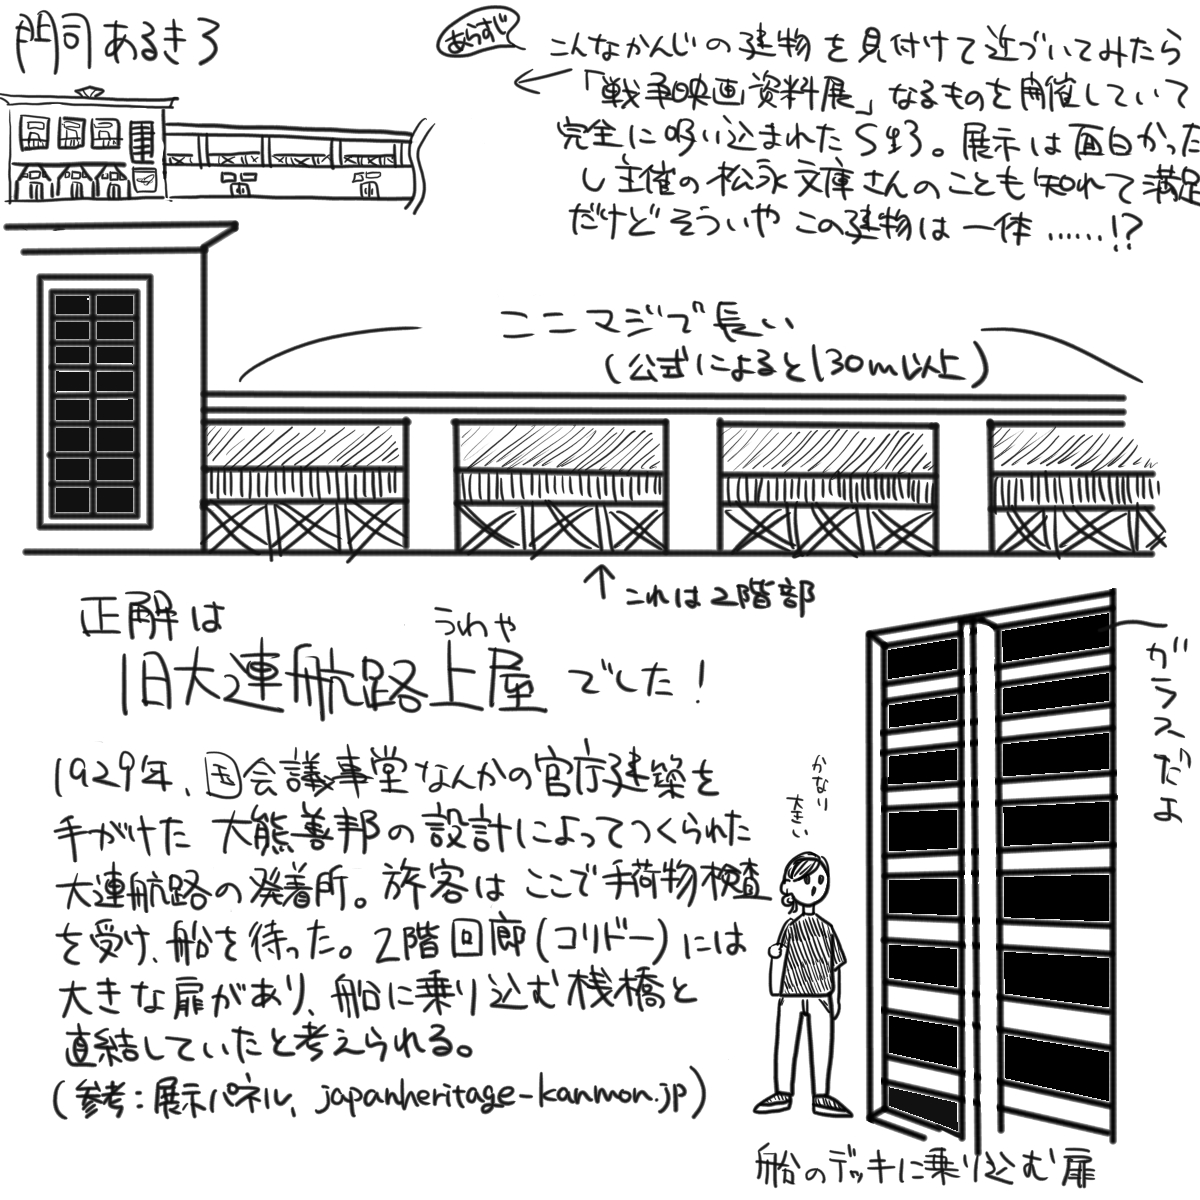 門司あるきろ
あらすじ
こんなかんじの建物を見付けて近づいてみたら
「戦争映画資料展」なるものを開催していて
完全に吸い込まれたS郎。展示は面白かった
し主催の松永文庫さんのことも知れて満足
だけどそういやこの建物は一体……!?
ここマジで長い
(公式によると130m以上)
↑これは2階部
正解は
うわや
旧大連航路上屋でした!
1929年、国会議事堂なんかの官庁建築を
手がけた大熊善邦の設計によってつくられた
大連航路の発着所。旅客はここで手荷物検査
を受け、船を待った。2階回廊(コリドー)には
大きな扉があり、船に乗り込む桟橋と
直結していたと考えられる。
(参考:展示パネル、japanheritage-kanmon.jp)
かなり
大きい
ガラスだよ
船のデッキに乗り込む扉